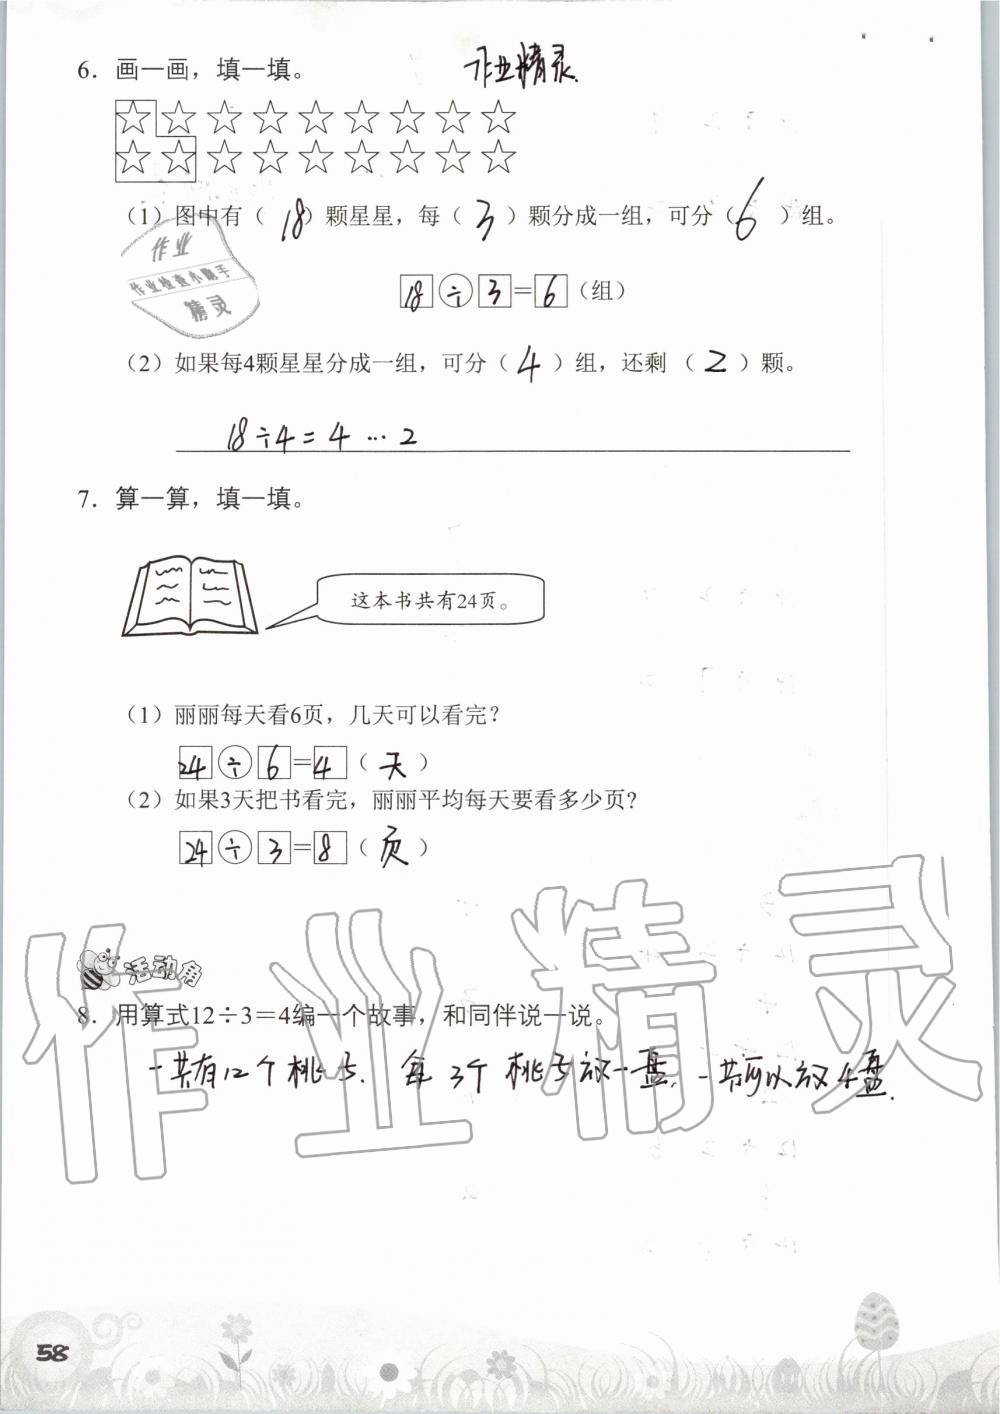 6. 画一画，填一填。 作业精灵.
（1）图中有（ 18 ）颗星星，每（ 3 ）颗分成一组，可分（ 6 ）组。
作业
作业检查小助手
精灵
18÷3=6（组）
（2）如果每4颗星星分成一组，可分（ 4 ）组，还剩（ 2 ）颗。
18÷4=4…2
7. 算一算，填一填。
这本书共有24页。
（1）丽丽每天看6页，几天可以看完？
24÷6=4（天）
（2）如果3天把书看完，丽丽平均每天要看多少页？
24÷3=8（页）
作业精灵
活动角
8. 用算式12÷3＝4编一个故事，和同伴说一说。
一共有12个桃子. 每3个桃子放一盘, 一共可以放4盘.
58